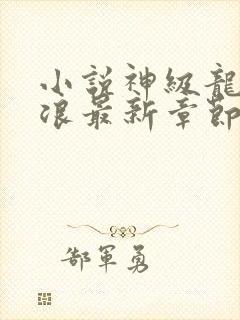 小説神級龍
浪最新章節
郜軍勇